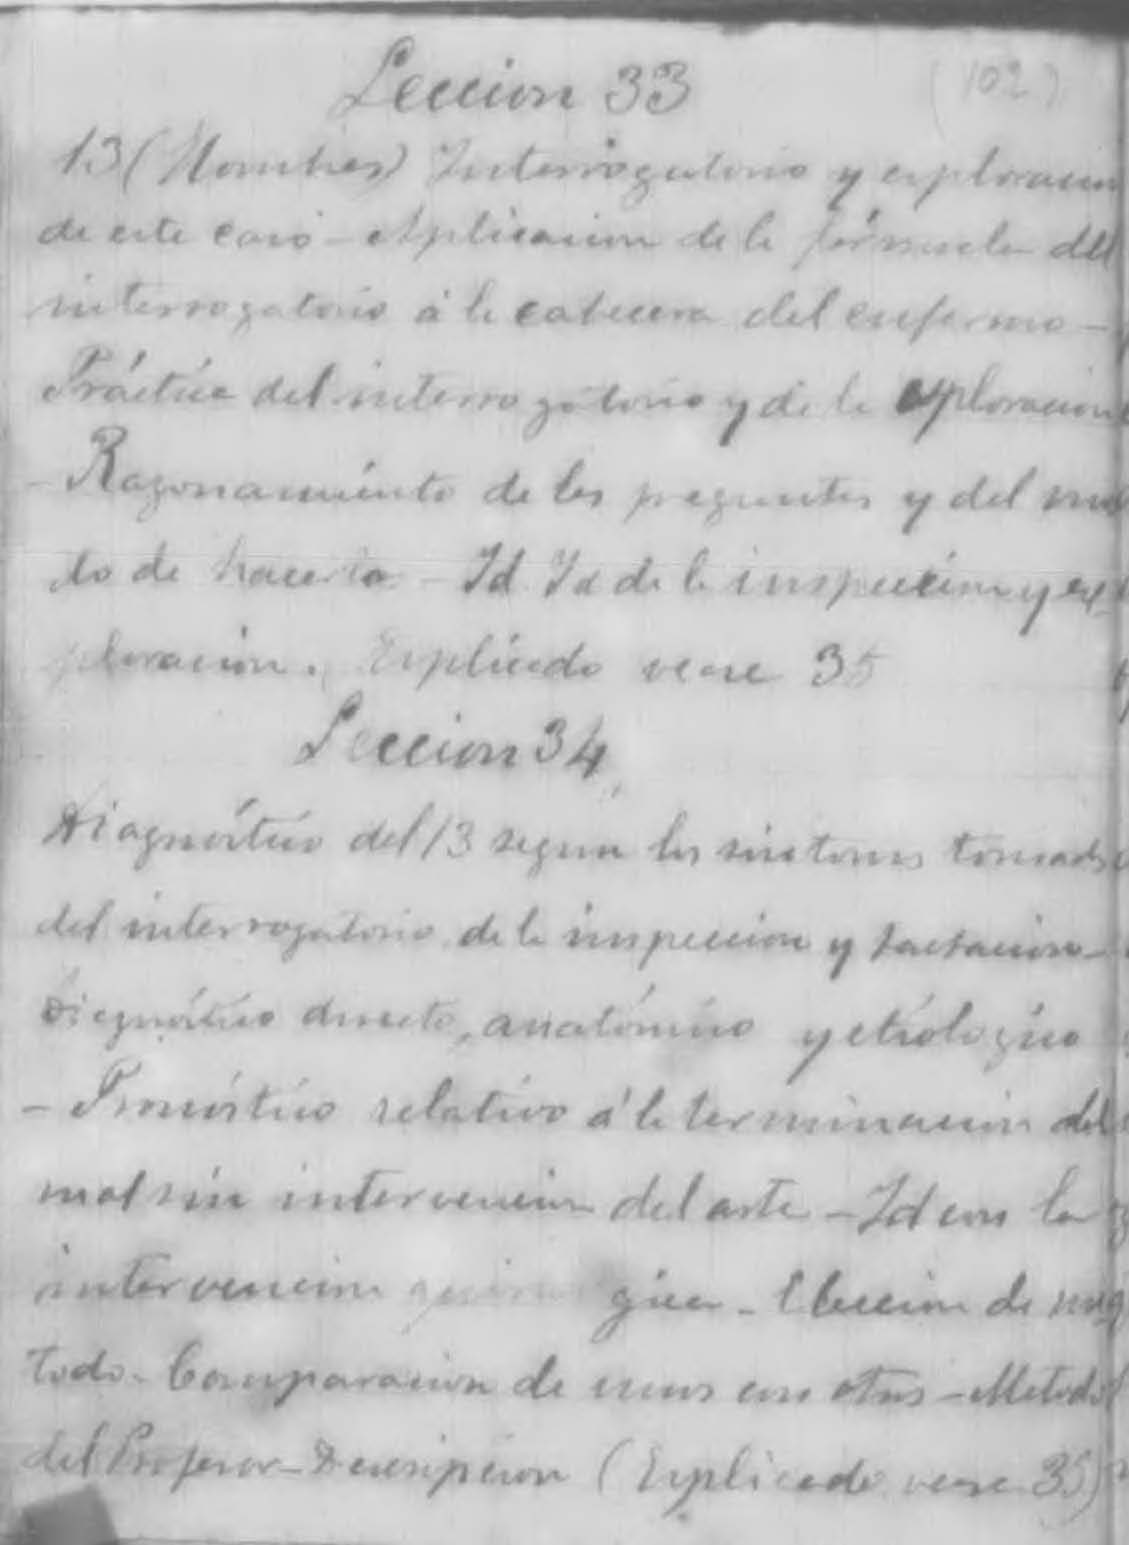 Leccion 33 (102)
13 (Hombres) Interrogatorio y exploracion
de este caso - Aplicacion de la fórmula del
interrogatorio á la cabecera del enfermo -
Práctica del interrogatorio y de la exploracion
- Razonamiento de las preguntas y del mo
do de hacerlas - Id Id de la inspeccion y ex
ploracion. Explicado vease 35
Leccion 34
Diagnóstico del 13 segun los sintomas tomados
del interrogatorio, de la inspeccion y tactacion -
Diagnóstico directo, anatómico y etiologico
- Pronóstico relativo á la terminacion del
mal sin intervencion del arte - Id con la
intervencion quirurgica - Eleccion de me
todo - Comparacion de unos con otros - Metodo
del Profesor - Descripcion (Explicado vease 35)